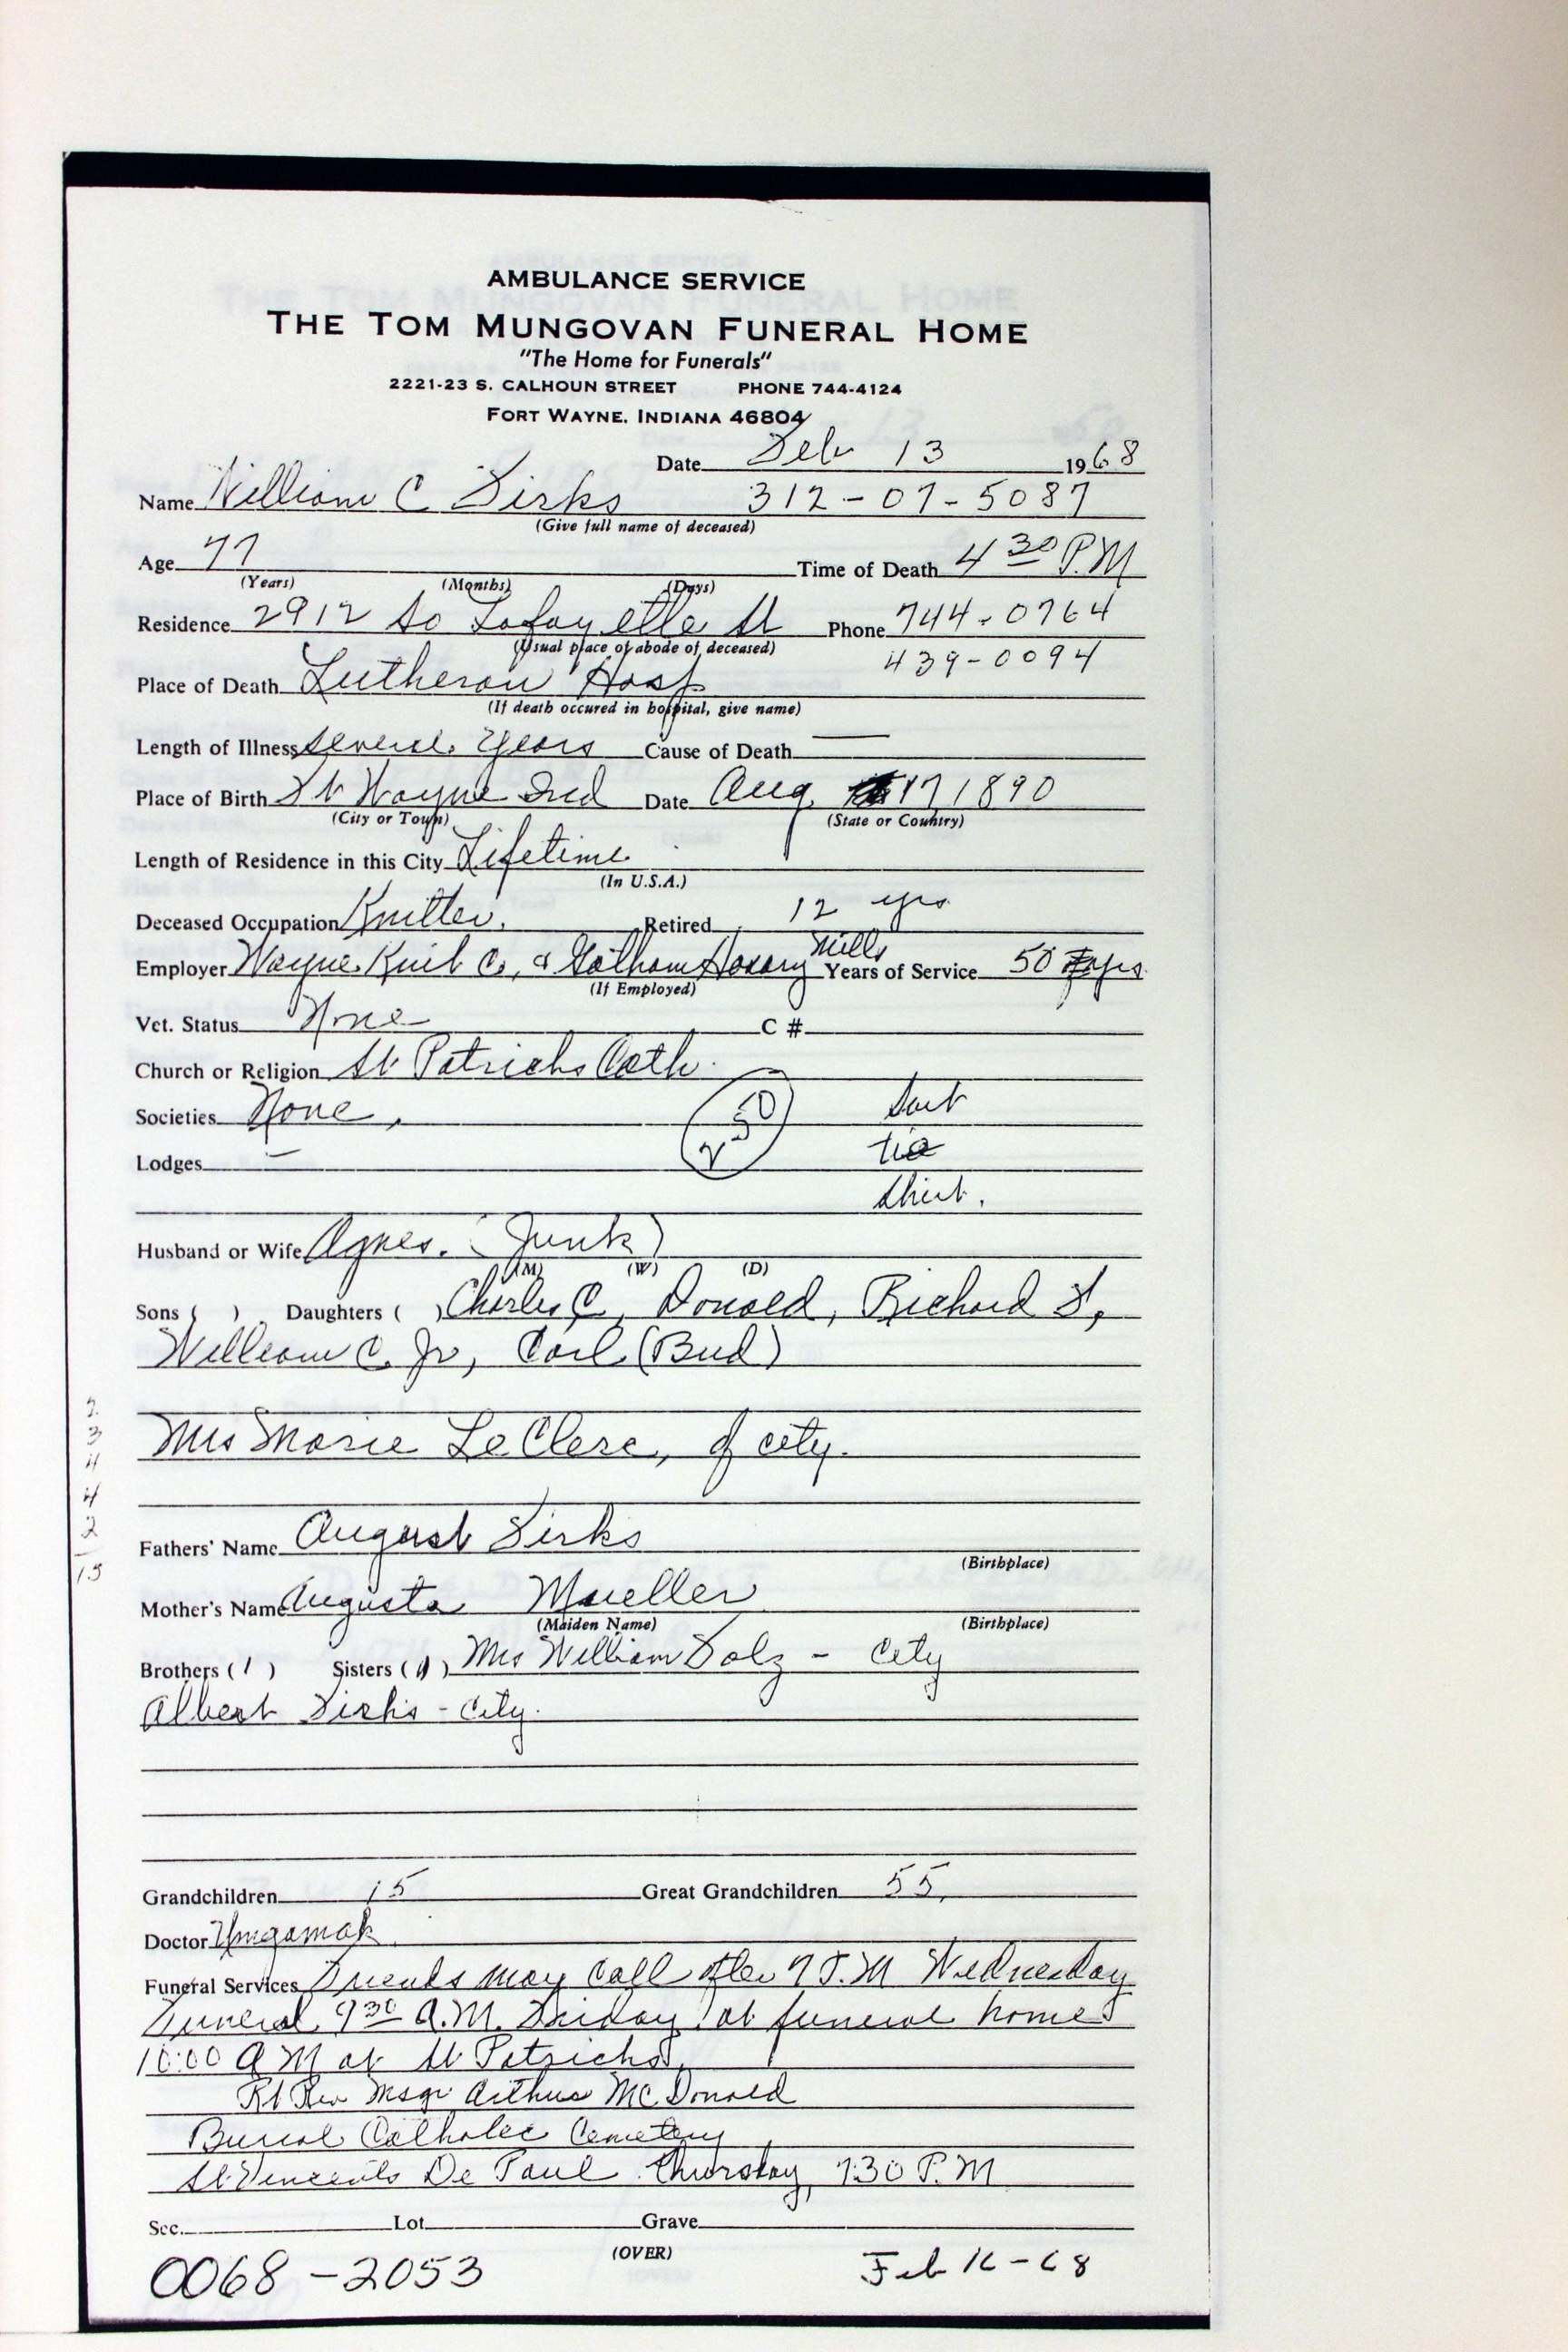 AMBULANCE SERVICE
THE TOM MUNGOVAN FUNERAL HOME
"The Home for Funerals"
2221-23 S. CALHOUN STREET PHONE 744-4124
FORT WAYNE, INDIANA 46804
Date Feb 13 1968
Name William C Dirks 312-07-5087
(Give full name of deceased)
Age 77 Time of Death 4 30 P.M
(Years) (Months) (Days)
Residence 2912 So Lafayette St Phone 744-0764
(Usual place of abode of deceased) 439-0094
Place of Death Lutheran Hosp
(If death occured in hospital, give name)
Length of Illness several years Cause of Death —
Place of Birth Ft Wayne Ind Date Aug 17, 1890
(City or Town) (State or Country)
Length of Residence in this City Lifetime
(In U.S.A.)
Deceased Occupation Knitter. Retired 12 yrs
Employer Wayne Knit Co, & Gotham Hosiery Mills Years of Service 50 yrs
(If Employed)
Vet. Status None C #
Church or Religion St Patricks Cath.
Societies None, 250 suit
Lodges — tie
shirt.
Husband or Wife Agnes. (Junk)
(M) (W) (D)
Sons ( ) Daughters ( ) Charles C, Donald, Richard
William C. Jr, Carl (Bud)
Mrs Marie LeClerc, of city.
2
3
4
4
2
15
Fathers' Name August Dirks
(Birthplace)
Mother's Name Augusta Mueller
(Maiden Name) (Birthplace)
Brothers (1) Sisters (1) Mrs William - City
Albert Dirks - City.
Grandchildren 15 Great Grandchildren 55
Doctor
Funeral Services Friends may call after 7 P.M Wednesday
Funeral 9 30 A.M. Friday at funeral home
10:00 A M at St Patricks
Rt Rev Msgr Arthur McDonald
Burial Catholic Cemetery
St Vincents De Paul Thursday, 7:30 P.M
Sec. Lot Grave
(OVER)
0068-2053 Feb 16-68